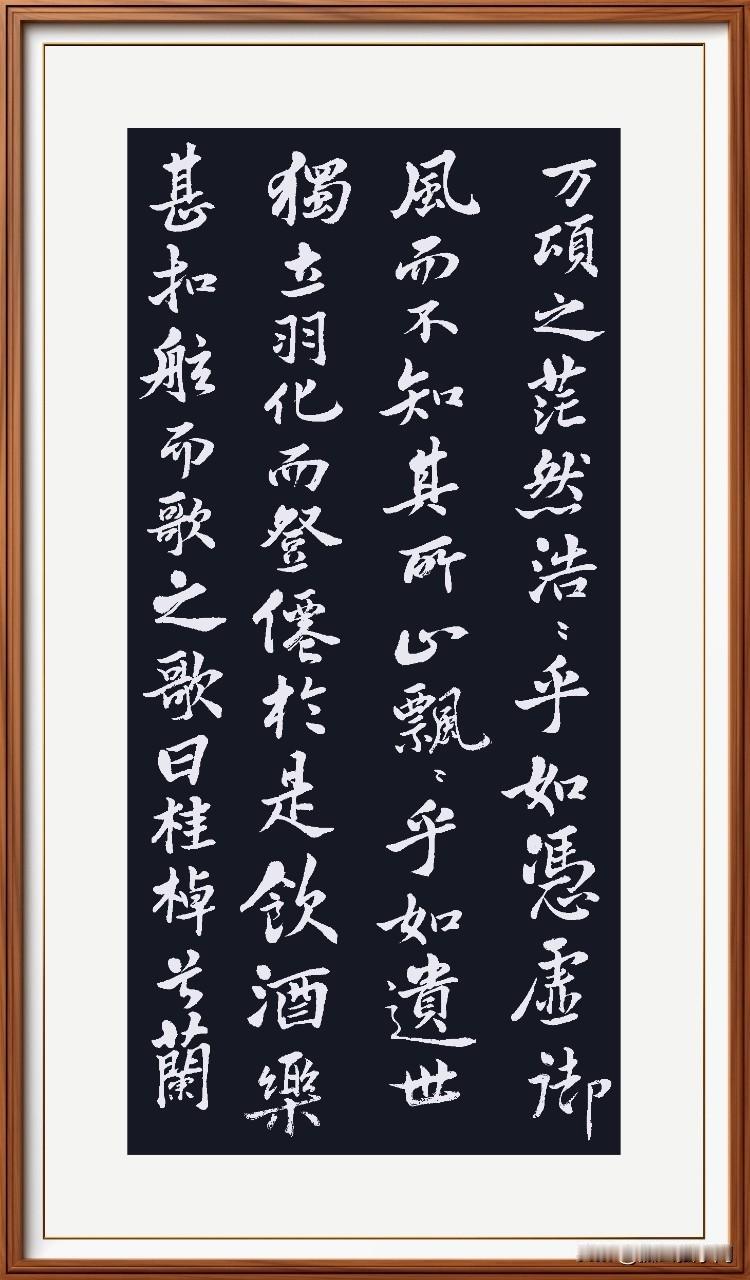 万頃之茫然浩〻乎如憑虛御
風而不知其所止飄〻乎如遺世
獨立羽化而登僊於是飲酒樂
甚扣舷而歌之歌曰桂棹兮蘭